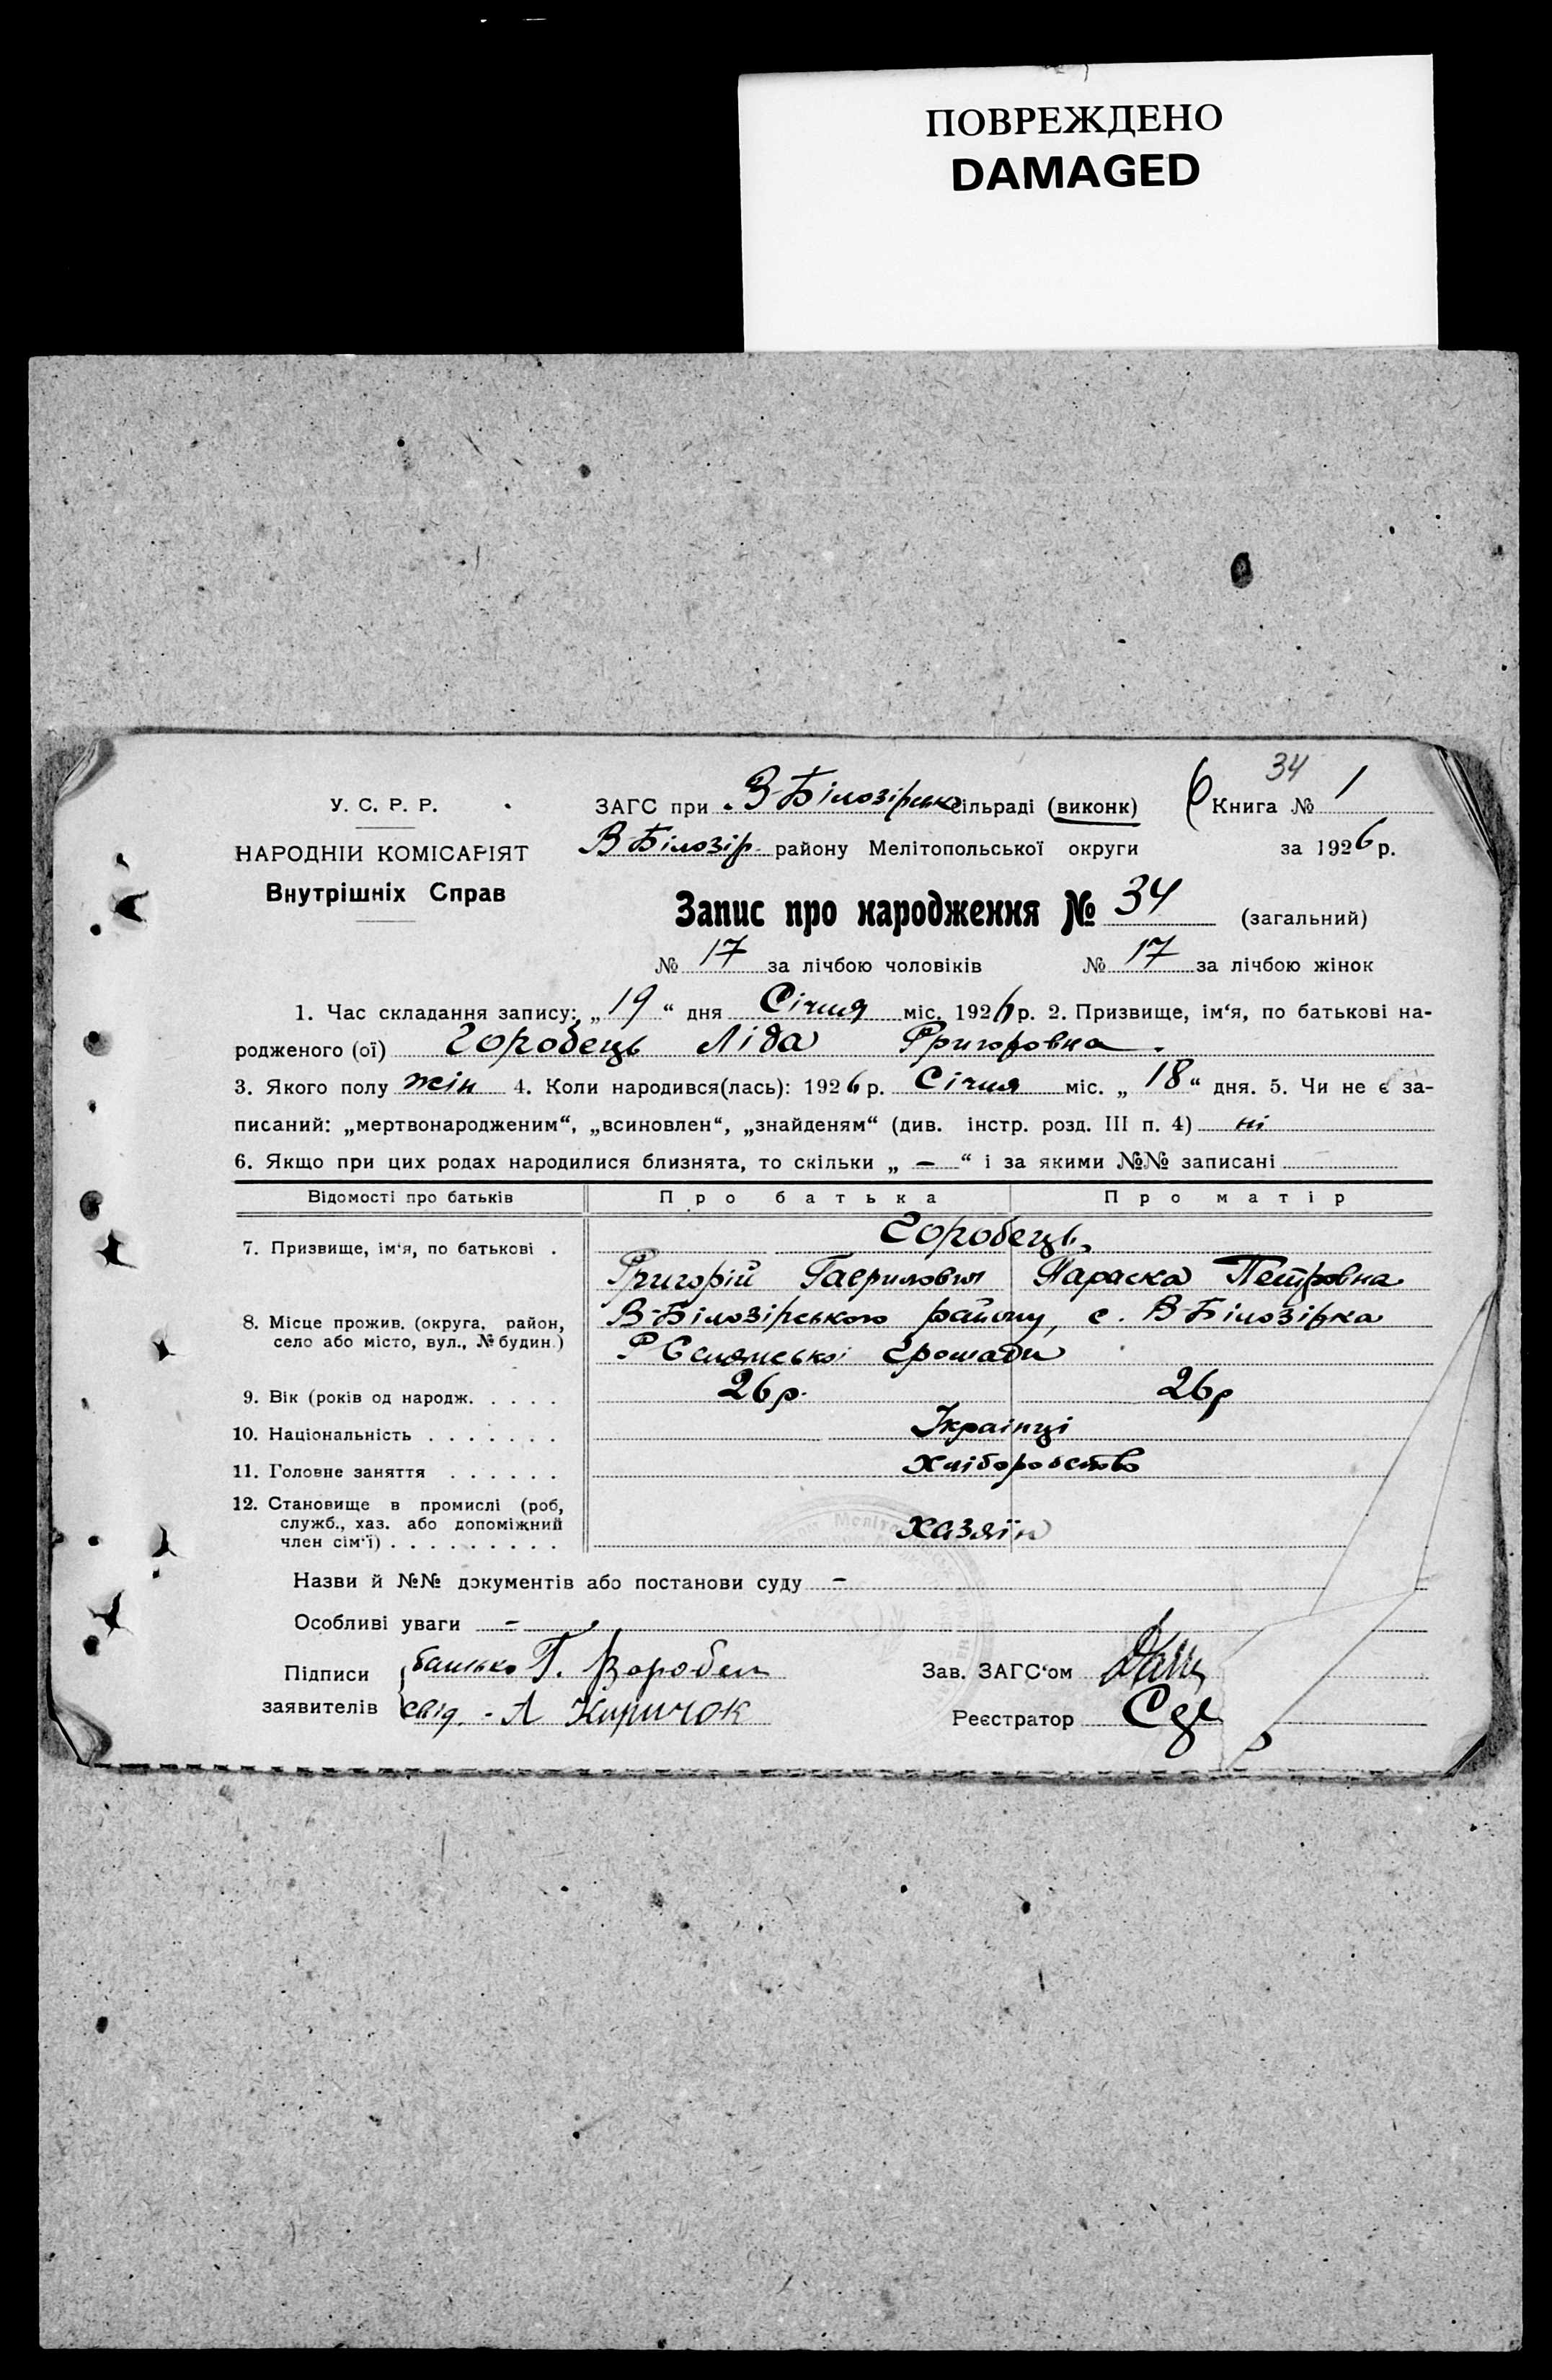 ПОВРЕЖДЕНО
DAMAGED
34
У. С. Р. Р.
НАРОДНІИ КОМІСАРІЯТ
Внутрішніх Справ
ЗАГС при В-Білозірська сільраді (виконк) Книга № 1
В-Білозір. району Мелітопольської округи за 1926 р.
Запис про народження № 34 (загальний)
№ 17 за лічбою чоловіків № 17 за лічбою жінок
1. Час складання запису: „19“ дня Січня міс. 1926 р. 2. Призвище, ім‘я, по батькові на-
родженого (ої) Горобець Ліда Григоровна.
3. Якого полу жін 4. Коли народився(лась): 1926 р. Січня міс. „18“ дня. 5. Чи не є за-
писаний: „мертвонародженим“, „всиновлен“, „знайденям“ (див. інстр. розд. III п. 4) ні
6. Якщо при цих родах народилися близнята, то скільки „ – “ і за якими №№ записані
Відомості про батьків Про батька Про матір
7. Призвище, ім‘я, по батькові . Горобець
Григорій Гаврилович Параска Петровна
8. Місце прожив. (округа, район, В-Білозірського району, с. В-Білозірка
село або місто, вул., № будин.) громади
9. Вік (років од народж. . . . . 26 р. 26 р
10. Національність . . . . . . . Українці
11. Головне заняття . . . . . . Хліборобство
12. Становище в промислі (роб,
служб., хаз. або допоміжний хазяїн
член сім‘ї) . . . . . . . . .
Назви й №№ документів або постанови суду –
Особливі уваги –
Підписи батько Г. Воробец Зав. ЗАГС‘ом
заявителів свід. - А Киричок Реєстратор